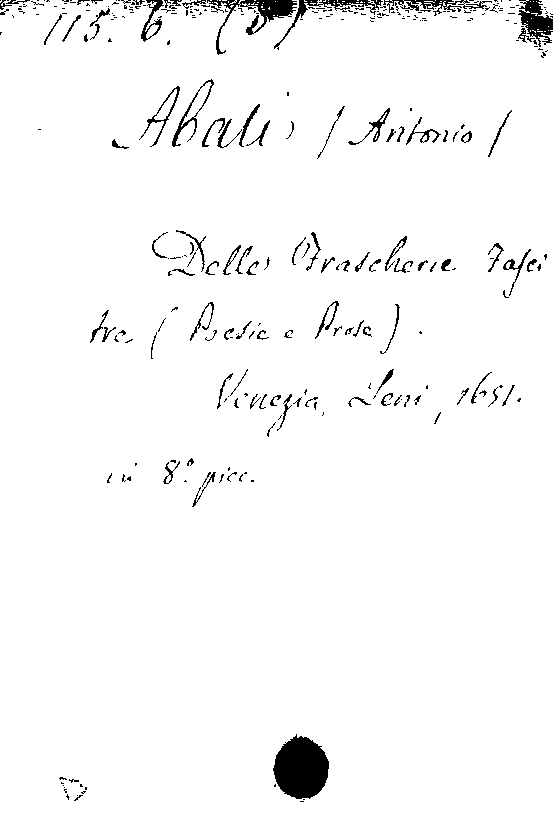 115. 6. (5)
Abati / Antonio /
Delle Frascherie Fasci
tre ( Poesie e Prose ) .
Venezia, Leni, 1651.
in 8.° picc.